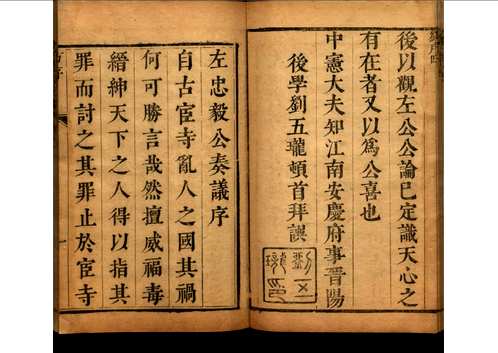 後以觀左公公論已定識天心之
有在者又以為公喜也
中憲大夫知江南安慶府事晋陽
後學劉五瓏頓首拜譔
左忠毅公奏議序
自古宦寺亂人之國其禍
何可勝言哉然擅威福毒
縉紳天下之人得以指其
罪而討之其罪止於宦寺